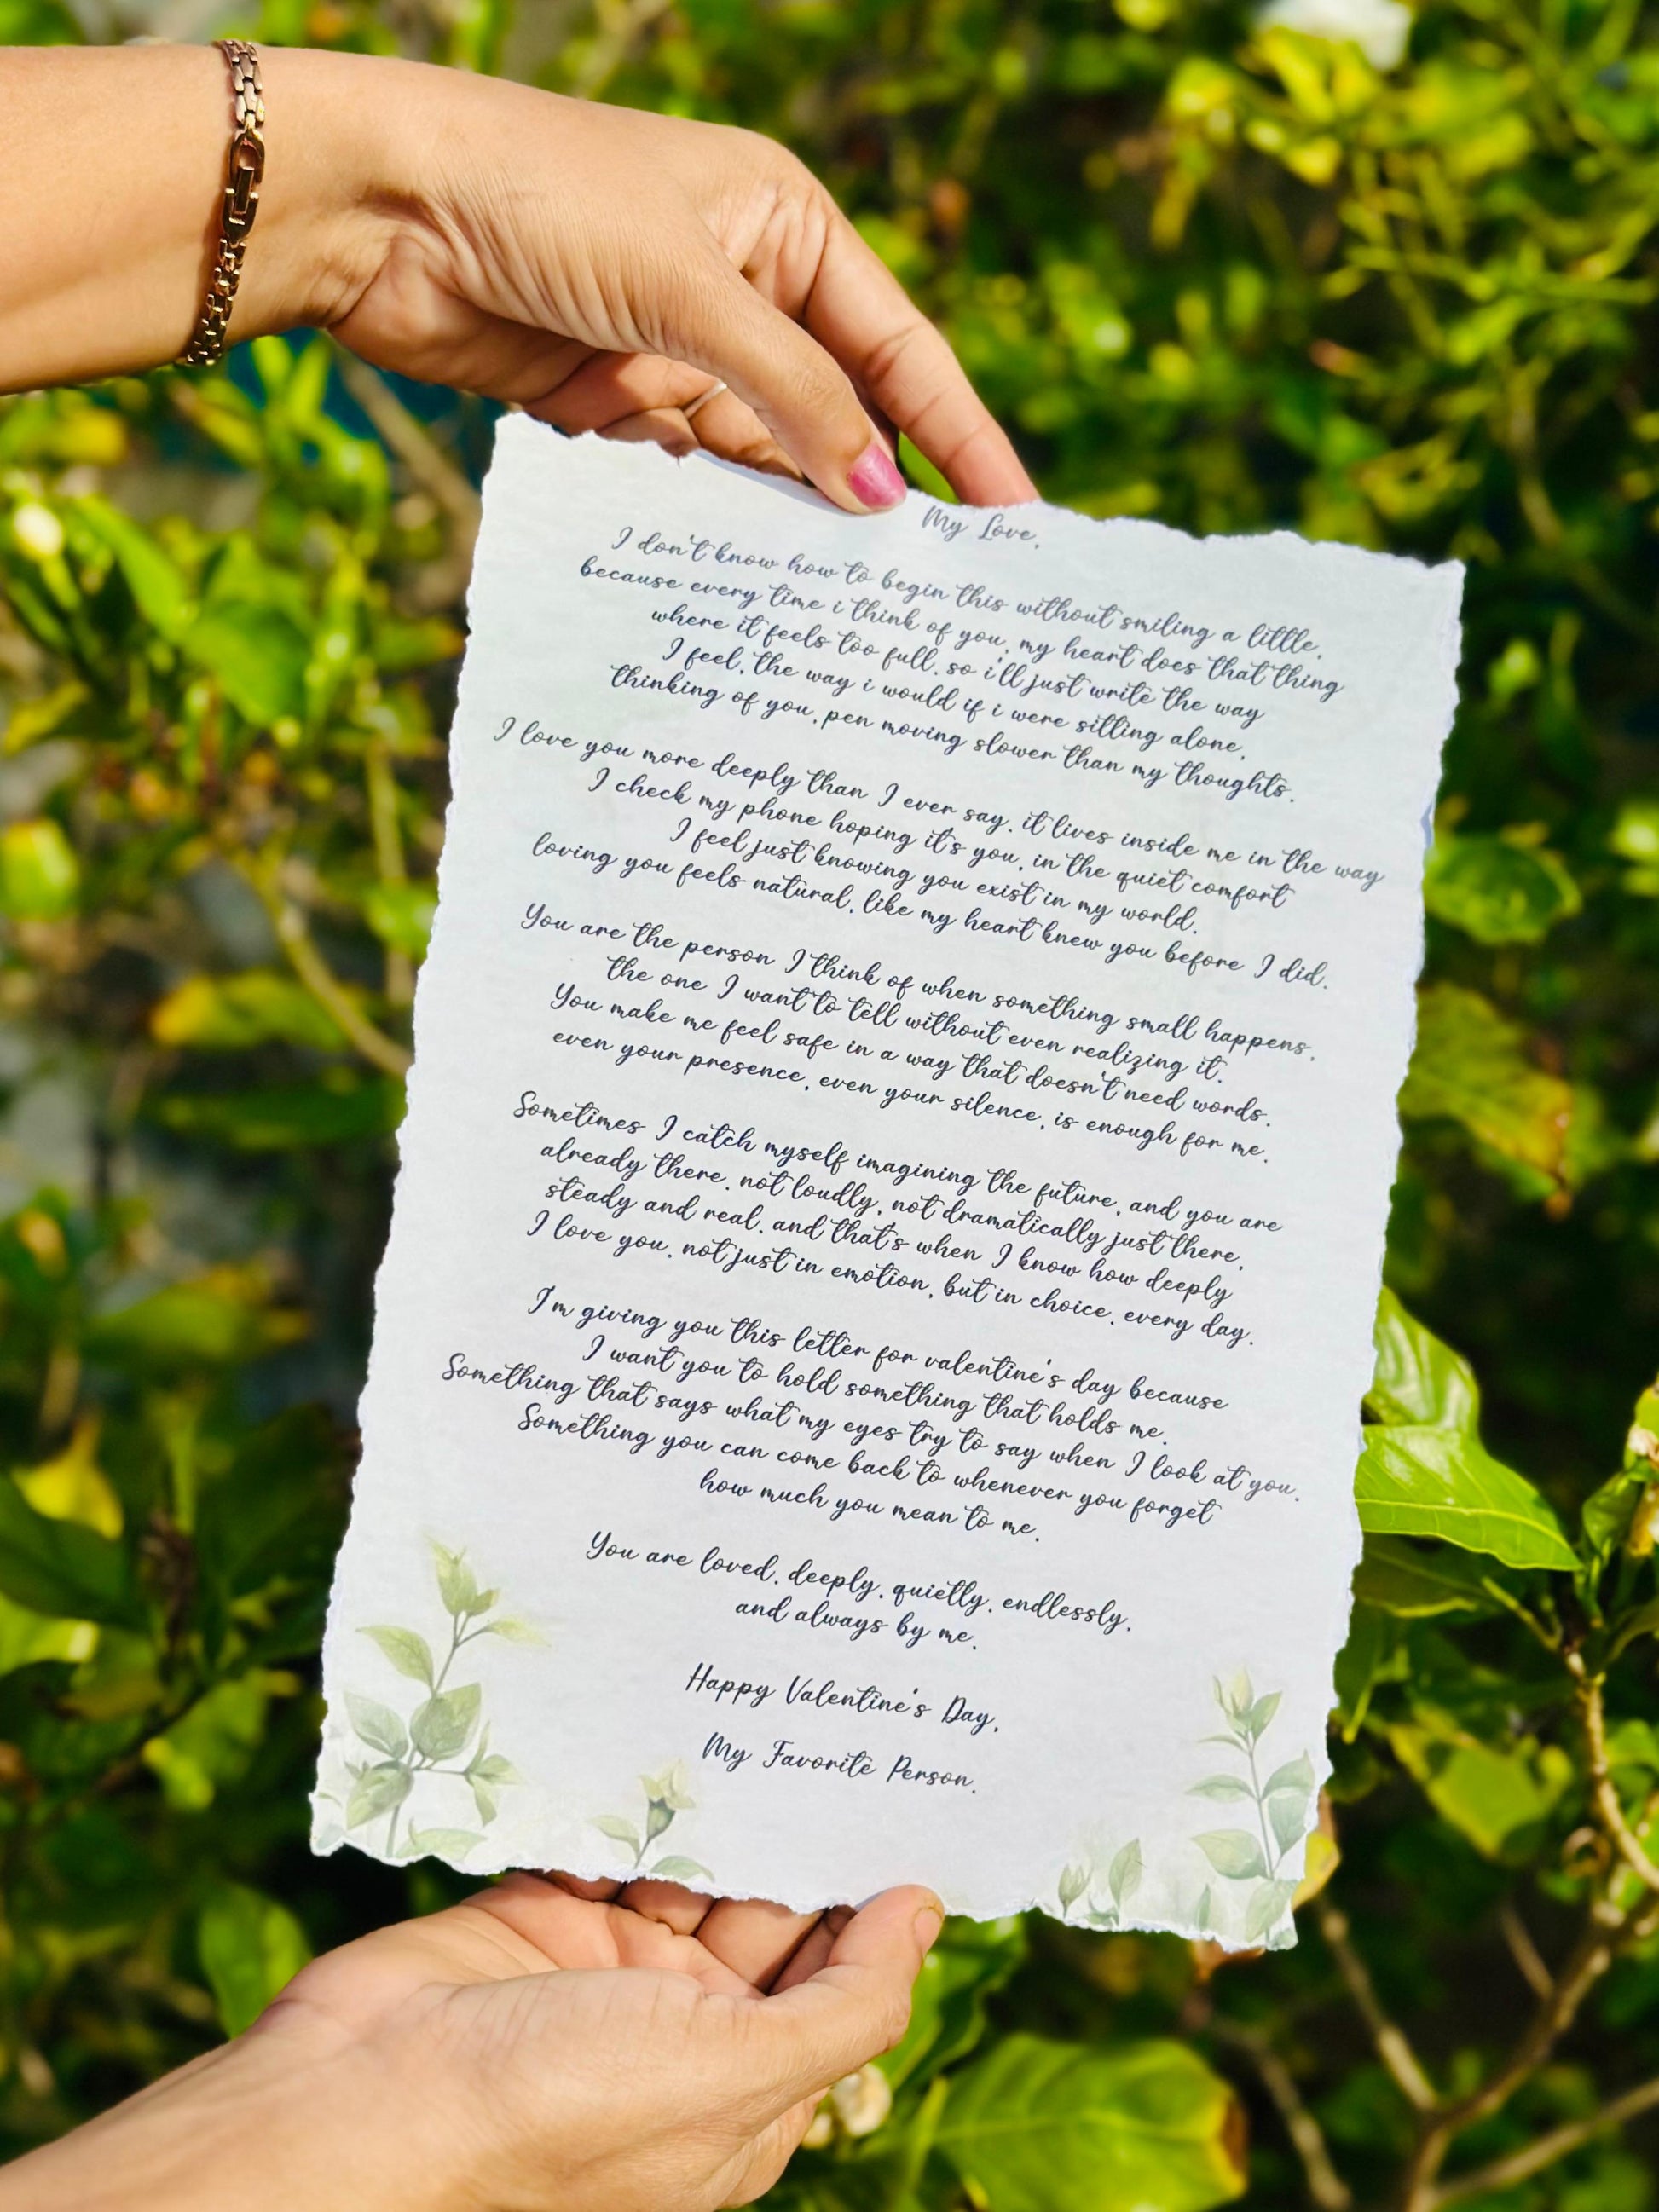 My Love,
I don't know how to begin this without smiling a little,
because every time i think of you, my heart does that thing
where it feels too full. so i'll just write the way
I feel, the way i would if i were sitting alone,
thinking of you, pen moving slower than my thoughts.
I love you more deeply than I ever say. it lives inside me in the way
I check my phone hoping it's you, in the quiet comfort
I feel just knowing you exist in my world.
loving you feels natural, like my heart knew you before I did.
You are the person I think of when something small happens,
the one I want to tell without even realizing it.
You make me feel safe in a way that doesn't need words.
even your presence, even your silence, is enough for me.
Sometimes I catch myself imagining the future, and you are
already there. not loudly, not dramatically just there,
steady and real. and that's when I know how deeply
I love you. not just in emotion, but in choice, every day.
I'm giving you this letter for valentine's day because
I want you to hold something that holds me.
Something that says what my eyes try to say when I look at you.
Something you can come back to whenever you forget
how much you mean to me.
You are loved. deeply. quietly. endlessly.
and always by me.
Happy Valentine's Day,
My Favorite Person.